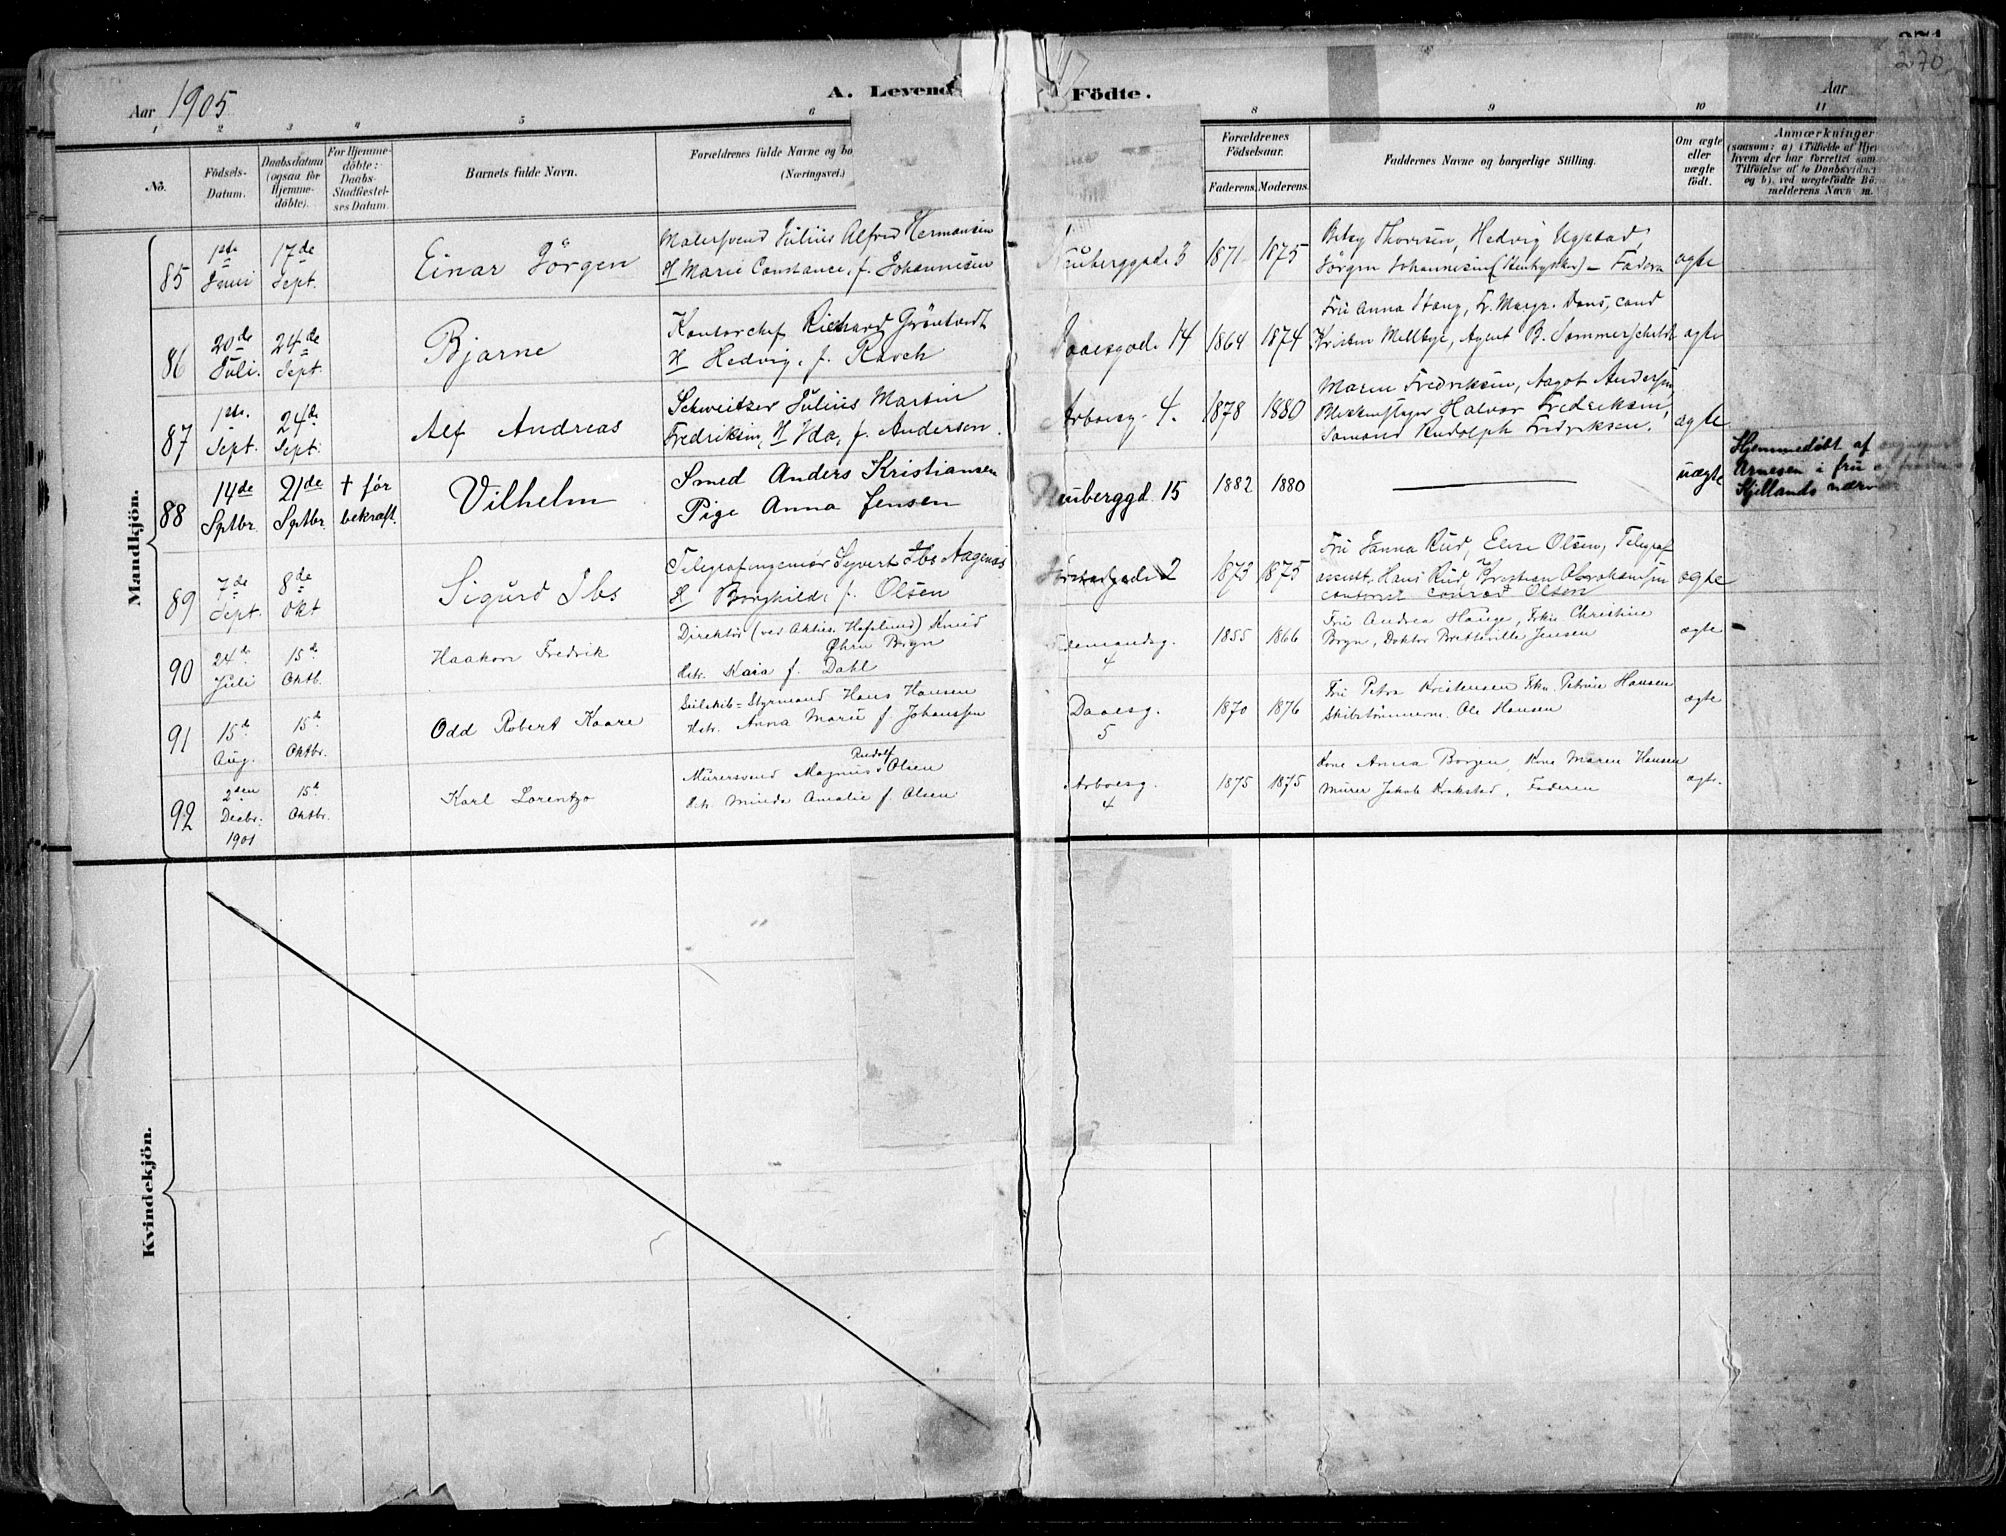 270
Aar 1905
A. Levend
Födte.
Aar
1 2 3 4 5 6 8 9 10 11
No.
Födsels-
Datum.
Daabsdatum
(ogsaa for
Hjemme-
döbte).
For Hjemme-
döbte:
Daabs-
Stadfæstel-
ses Datum.
Barnets fulde Navn.
Forældrenes fulde Navne og bo
(Næringsvei.)
Forældrenes
Födselsaar.
Faderens. Moderens.
Faddernes Navne og borgerlige Stilling.
Om ægte
eller
uægte
födt.
Anmærkninger
(saasom: a) i Tilfælde af Hje
hvem der har forrettet sam
Tilföielse af to Daabsvidne
og b), ved uægtefödte Bö
melderens Navn m.
Mandkjön.
85
1ste
Juni
17de
Sept.
Einar Jörgen
Malersvend Julius Alfred Hermansen
H Marie Constance, f. Johannesen
Neuberggade 3
1871 1875
Betsy Thoresen, Hedvig Ugstad,
Jörgen Johannesen - Faderen
ægte
86
20de
Juli.
24de
Sept.
Bjarne
Kontorchef Richard Gröntvedt
H Hedvig, f. Ravch
14
1864 1874
Fru Anna Stang, Fr. Margr. Dons, cand
Kristen Mellbye, Agent B. Sommerscheldt
ægte
87
1ste.
Sept.
24de
Sept.
Alf Andreas
Schweitzer Julius Martin
Fredriksen, H Ida, f. Andersen.
Arboesg. 4.
1878 1880
Maren Fredriksen, Aagot Andersen,
Blikkenslager Halvor Fredriksen,
Sömand Rudolph Fredriksen.
ægte
88
14de
Sptbr.
21de
Sptbr.
† för
bekræft.
Vilhelm
Smed Anders Kristiansen
Pige Anna Jensen
Neuberggd. 15
1882 1880
uægte
Hjemmedöbt af
Arnesen i fru
Kjellands nærv
89
7de
Sept.
8de
Okt
Sigurd Ibs
Telegrafingeniör Syvert Ibs Aagenæs
H Borghild, f. Olsen
2
1873 1875
Fru Janna Rud, Elise Olsen, Telegraf
assist. Hans Rud, Kristian Abrahamsen
contorist Conrad Olsen
ægte
90
24de
Juli
15de
Oktb.
Haakon Fredrik
Direktör (ved Akties. Hafslund) Knud
Öhrn Bryn
Hstr. Kaia f. Dahl
4
1855 1866
Fru Andrea Hauge, Frkn Christine
Bryn, Doktor Bretteville Jensen
ægte
91
15de
Aug.
15de
Oktbr.
Odd Robert Kaare
Seilskib-Styrmand Hans Hansen
Hstr. Anna Marie f. Johanssen
Daaesg.
5
1870 1876
Fru Petra Kristensen Frkn. Petrine Hansen
Skibstömmerm. Ole Hansen
ægte
92
2den
Decbr.
1901
15de
Oktbr.
Karl Lorentzo
Rudolf
Murersvend Magnus Olsen
Hstr. Minda Amalie f. Olsen
Arboesg.
4
1875 1875
Kone Anna Borgen, Kone Maren Hansen
Murer Jakob Krokstad, Faderen
ægte.
Kvindekjön.